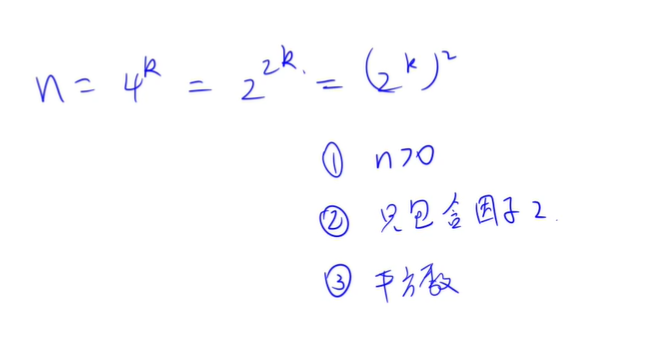 n = 4^k = 2^{2k} = (2^k)^2
① n>0
② 只包含因子2.
③ 平方数